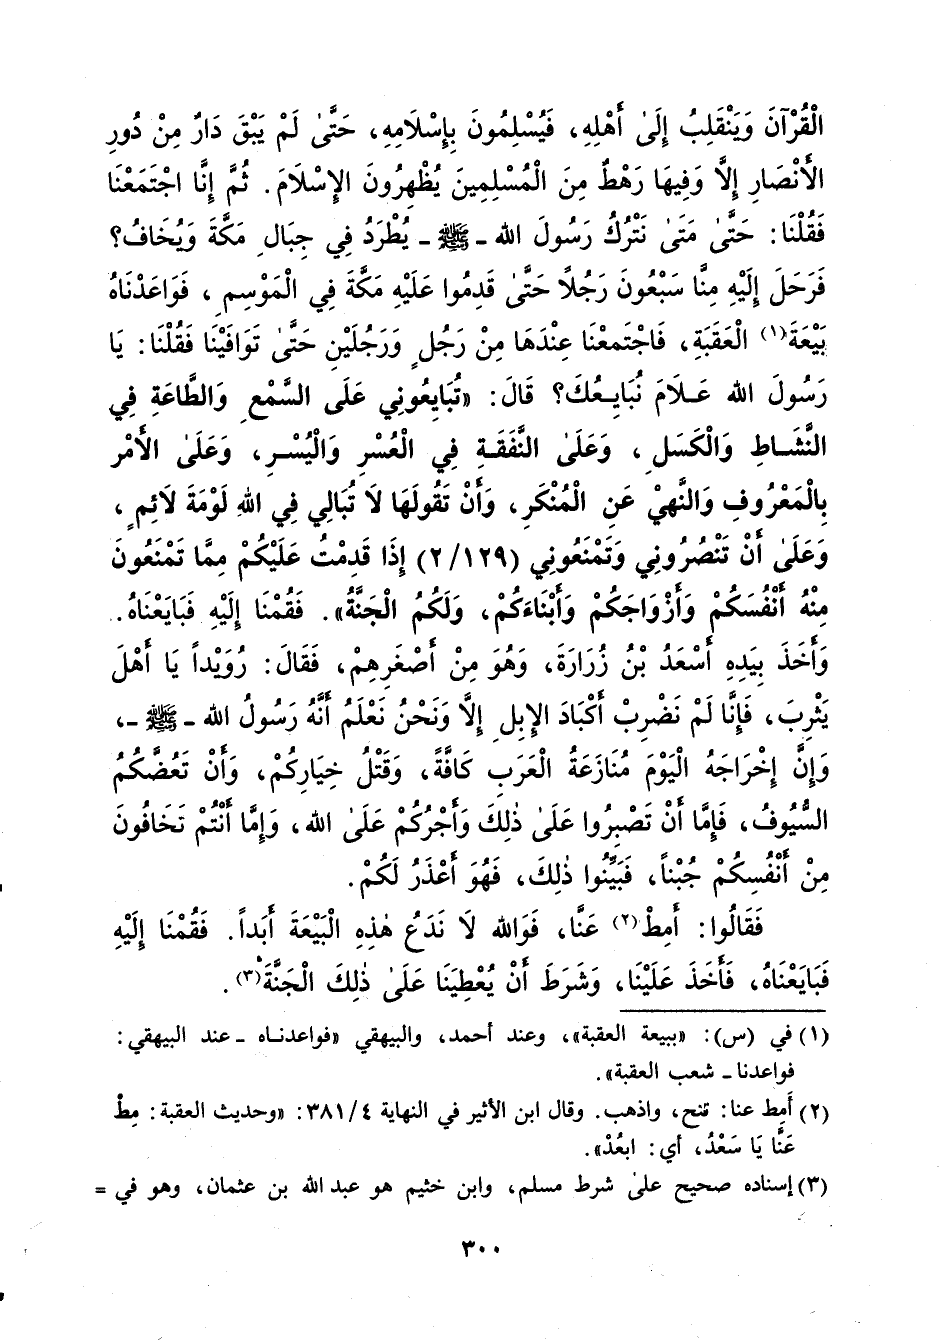 الْقُرْآنَ وَيَنْقَلِبُ إِلَىٰ أَهْلِهِ، فَيُسْلِمُونَ بِإِسْلَامِهِ، حَتَّىٰ لَمْ يَبْقَ دَارٌ مِنْ دُورِ
الأَنْصَارِ إِلَّا وَفِيهَا رَهْطٌ مِنَ الْمُسْلِمِينَ يُظْهِرُونَ الإِسْلَامَ. ثُمَّ إِنَّا اجْتَمَعْنَا
فَقُلْنَا: حَتَّىٰ مَتَىٰ نَتْرُكُ رَسُولَ الله ـ ﷺ ـ يُطْرَدُ فِي جِبَالِ مَكَّةَ وَيُخَافُ؟
فَرَحَلَ إِلَيْهِ مِنَّا سَبْعُونَ رَجُلًا حَتَّىٰ قَدِمُوا عَلَيْهِ مَكَّةَ فِي الْمَوْسِمِ، فَوَاعَدْنَاهُ
بَيْعَةَ(١) الْعَقَبَةِ، فَاجْتَمَعْنَا عِنْدَهَا مِنْ رَجُلٍ وَرَجُلَيْنِ حَتَّىٰ تَوَافَيْنَا فَقُلْنَا: يَا
رَسُولَ الله عَـلَامَ نُبَايِـعُكَ؟ قَالَ: «تُبَايِعُونِي عَلَى السَّمْعِ وَالطَّاعَةِ فِي
النَّشَـاطِ وَالْكَسَلِ، وَعَلَىٰ النَّفَقَـةِ فِي الْعُسْرِ وَالْيُسْـرِ، وَعَلَىٰ الأَمْرِ
بِالْمَعْرُوفِ وَالنَّهيْ عَنِ الْمُنْكَرِ، وَأَنْ تَقُولَهَا لَا تُبَالِي فِي اللهِ لَوْمَةَ لَائِمٍ،
وَعَلَىٰ أَنْ تَنْصُرُونِي وَتَمْنَعُونِي (٢/١٢٩) إِذَا قَدِمْتُ عَلَيْكُمْ مِمَّا تَمْنَعُونَ
مِنْهُ أَنْفُسَكُمْ وَأَزْوَاجَكُمْ وَأَبْنَاءَكُمْ، وَلَكُمُ الْجَنَّةُ». فَقُمْنَا إِلَيْهِ فَبَايَعْنَاهُ.
وَأَخَذَ بِيَدِهِ أَسْعَدُ بْنُ زُرَارَةَ، وَهُوَ مِنْ أَصْغَرِهِمْ، فَقَالَ: رُوَيْداً يَا أَهْلَ
يَثْرِبَ، فَإِنَّا لَمْ نَضْرِبْ أَكْبَادَ الإِبِلِ إِلَّا وَنَحْنُ نَعْلَمُ أَنَّهُ رَسُولُ الله ـ ﷺ ـ،
وَإِنَّ إِخْرَاجَهُ الْيَوْمَ مُنَازَعَةُ الْعَرَبِ كَافَّةً، وَقَتْلُ خِيَارِكُمْ، وَأَنْ تَعُضَّكُمُ
السُّيُوفُ، فَإِمَّا أَنْ تَصْبِرُوا عَلَىٰ ذٰلِكَ وَأَجْرُكُمْ عَلَىٰ الله، وَإِمَّا أَنْتُمْ تَخَافُونَ
مِنْ أَنْفُسِكُمْ جُبْناً، فَبَيِّنُوا ذٰلِكَ، فَهُوَ أَعْذَرُ لَكُمْ.
فَقَالُوا: أَمِطْ(٢) عَنَّا، فَوَالله لَا نَدَعُ هٰذِهِ الْبَيْعَةَ أَبَداً. فَقُمْنَا إِلَيْهِ
فَبَايَعْنَاهُ، فَأَخَذَ عَلَيْنَا، وَشَرَطَ أَنْ يُعْطِيَنَا عَلَىٰ ذٰلِكَ الْجَنَّةَ(٣).
(١) في (س): «ببيعة العقبة»، وعند أحمد، والبيهقي «فواعدنـاه ـ عند البيهقي:
فواعدنا ـ شعب العقبة».
(٢) أَمِط عنا: تنح، واذهب. وقال ابن الأثير في النهاية ٣٨١/٤: «وحديث العقبة: مِطْ
عَنَّا يَا سَعْدُ، أي: ابعُدْ».
(٣) إسناده صحيح علىٰ شرط مسلم، وابن خثيم هو عبد الله بن عثمان، وهو في =
٣٠٠